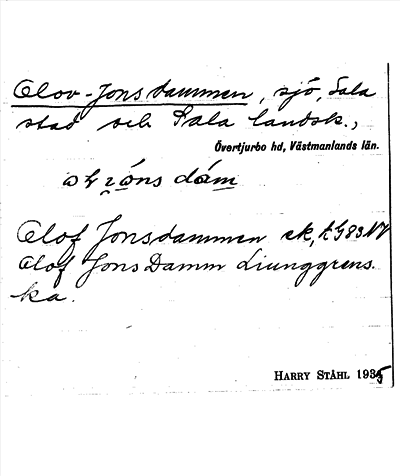 Olov-Jonsdammen, sjö, Sala
stad och Sala landsk.,
Övertjurbo hd, Västmanlands län.
Olof Jonsdammen ek, kG83NV
Olof Jons Damm Liunggrens
ka.
HARRY STÅHL 1935